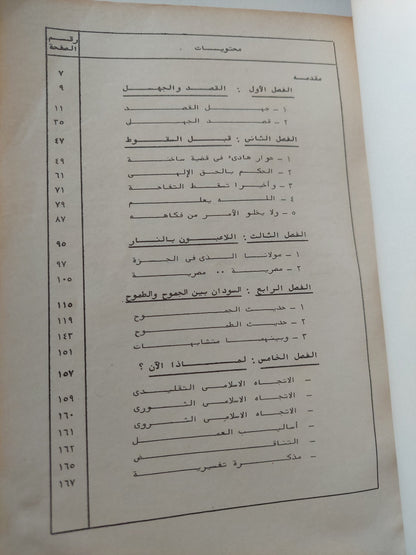 محتويات
رقم الصفحة
مقدمة ٧
الفصل الأول : القصد والجهل ٩
١ - جهل القصد ١١
٢ - قصد الجهل ٣٥
الفصل الثانى : قبل السقوط ٤٧
١ - حوار هادىء فى قضية ساخنة ٤٩
٢ - الحكم بالحق الإلهى ٦١
٣ - وأخيرا تسقط التفاحة ٧١
٤ - الله يعلم ٧٩
٥ - ولا يخلو الأمر من فكاهه ٨٧
الفصل الثالث : اللاعبون بالنار ٩٥
١ - مولانا الذى فى الجزة ٩٧
٢ - مصرية .. مصرية ١٠٥
الفصل الرابع : السودان بين الجموح والطموح ١١٥
١ - حديث الجموح ١١٩
٢ - حديث الطموح ١٤٣
٣ - وبينهما متشابهات ١٥١
الفصل الخامس : لماذا الآن ؟ ١٥٧
- الاتجاه الاسلامى التقليدى ١٥٩
- الاتجاه الاسلامى الثورى ١٦٠
- الاتجاه الاسلامى الثروى ١٦١
- أساليب العمل ١٦٢
- التناقض ١٦٥
- مذكرة تفسيرية ١٦٧